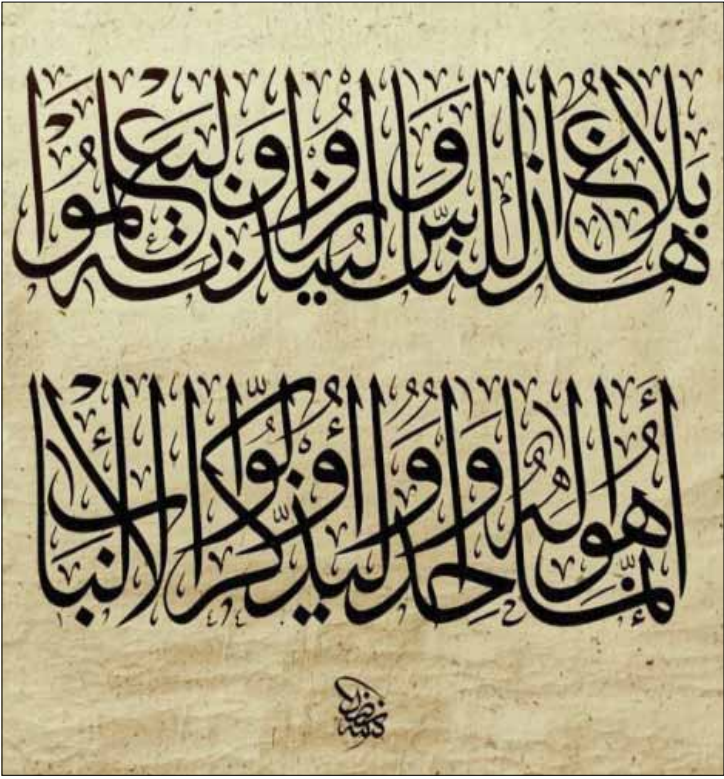 هَذَا بَلَاغٌ لِلنَّاسِ وَلِيُنْذَرُوا بِهِ وَلِيَعْلَمُوا
أَنَّمَا هُوَ إِلَهٌ وَاحِدٌ وَلِيَذَّكَّرَ أُولُوا الْأَلْبَابِ